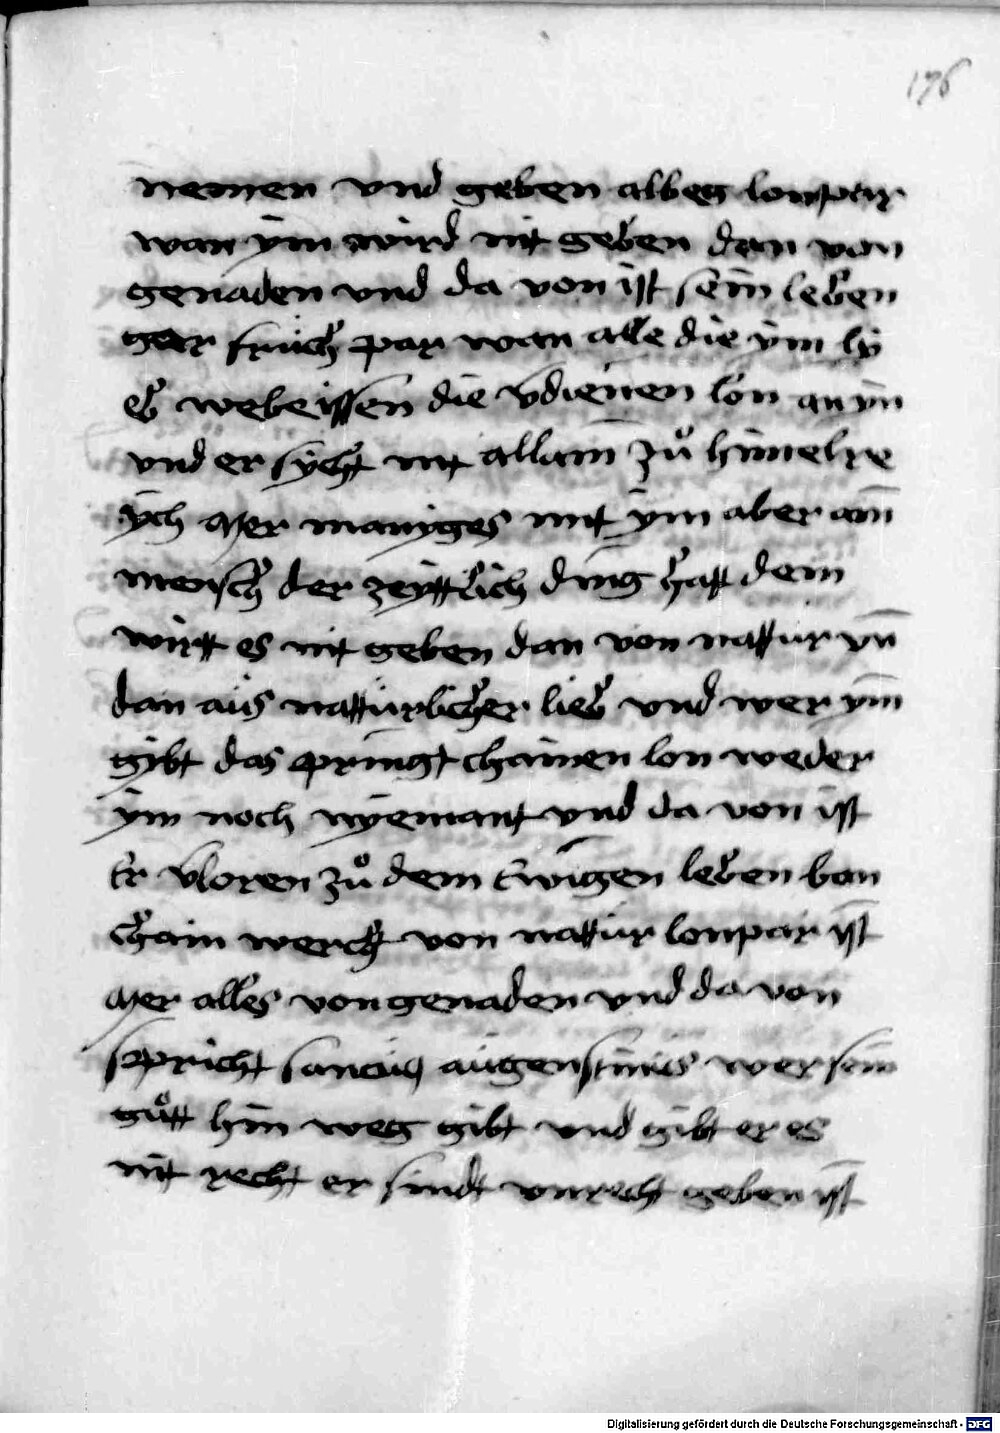 176
nemen vnd geben albeg lonpar
wan ym wird nit geben dan von
genaden vnd da von ist sein leben
gar frucht par wan alle die ym ly
eb webeissen die vdienen lon an ym
vnd er sycht nit allain zů himelre
ych Mer maniges mit ym aber ain
mensch der zeyttlich ding hatt dem
wirtt es nit geben dan von nattur vn̄
dan aus natturlicher lieb vnd wer ym
gibt das pringt chainen lon weder
ym noch nyemant vnd da von ist
Er vloren zů dem Ewigen lebenban
chain werch von nattur lonpar ist
Mer alles von genaden vnd da von
spricht sanctus augenstinus wer sein
gůtt hin weg gibt vnd gibt er es
nit recht er sindt vnrecht geben ist
Digitalisierung gefördert durch die Deutsche Forschungsgemeinschaft - DFG